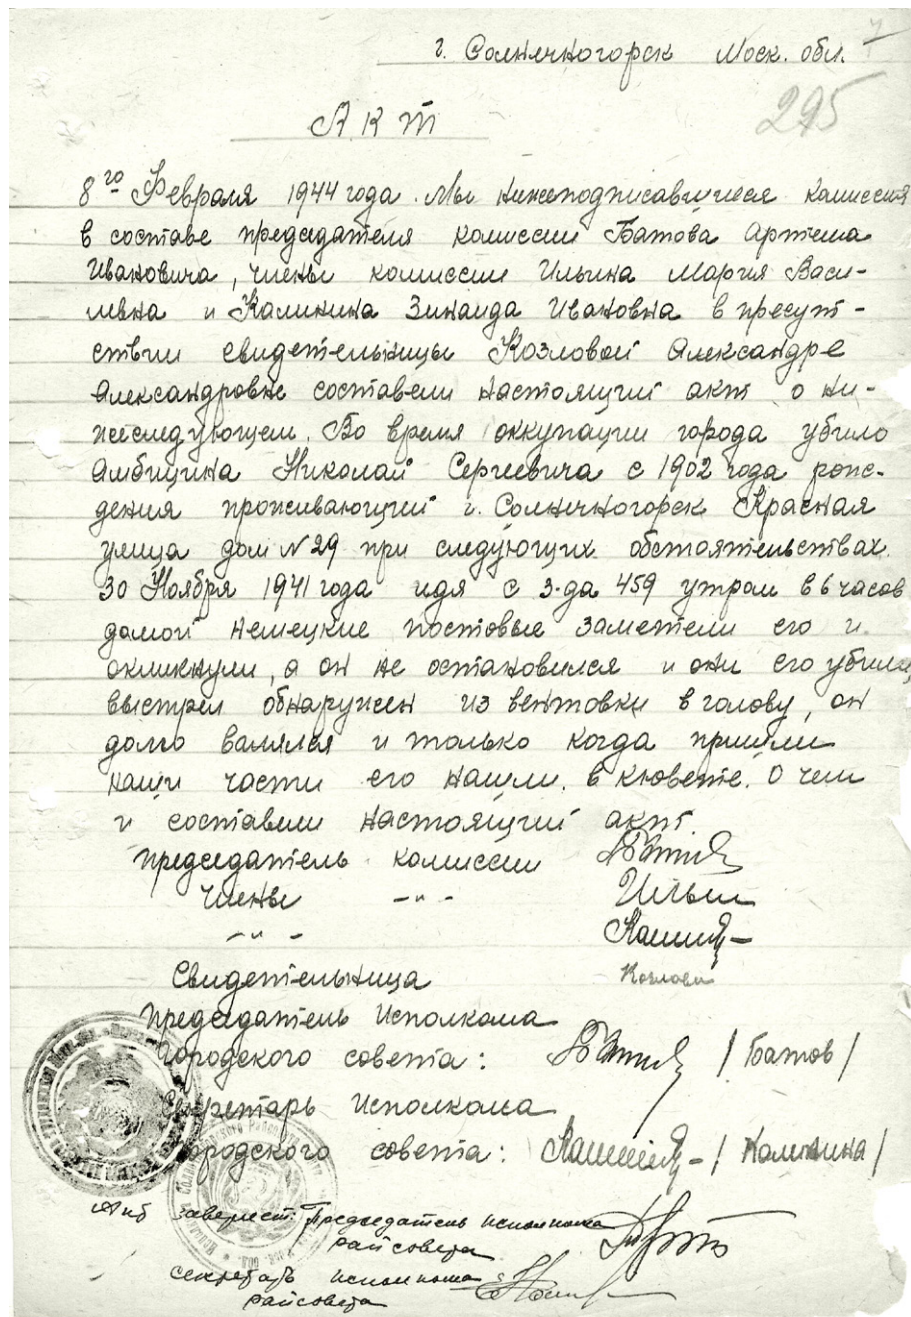 7
г. Солнечногорск Моск. обл.
295
Акт
8го Февраля 1944 года. Мы нижеподписавшиеся комиссия
в составе председателя комиссии Батова Артема
Ивановича, члены комиссии Ильина Мария Васи-
левна и Калинина Зинаида Ивановна в присут-
ствии свидетельницы Козловой Александре
Александровне составели настоящий акт о ни-
жеследующем. Во время оккупации города убило
Амбицина Николай Сергеевича с 1902 года рож-
дения проживающий г. Солнечногорск Красная
улица дом № 29 при следующих обстоятельствах.
30 Ноября 1941 года идя с з-да 459 утром в 6 часов
домой немецкие постовые заметели его и
окликнули, а он не остановился и они его убили,
выстрел обнаружен из вентовки в голову, он
долго валялся и только когда пришли
наши части его нашли в кювете. О чем
и составели настоящий акт.
Председатель комиссии
члены -"-
-"-
Свидетельница Козлова
Председатель Исполкома
Городского совета: /Батов/
Секретарь Исполкома
Городского совета: /Калинина/
Председатель исполкома
райсовета
секретарь исполкома
райсовета